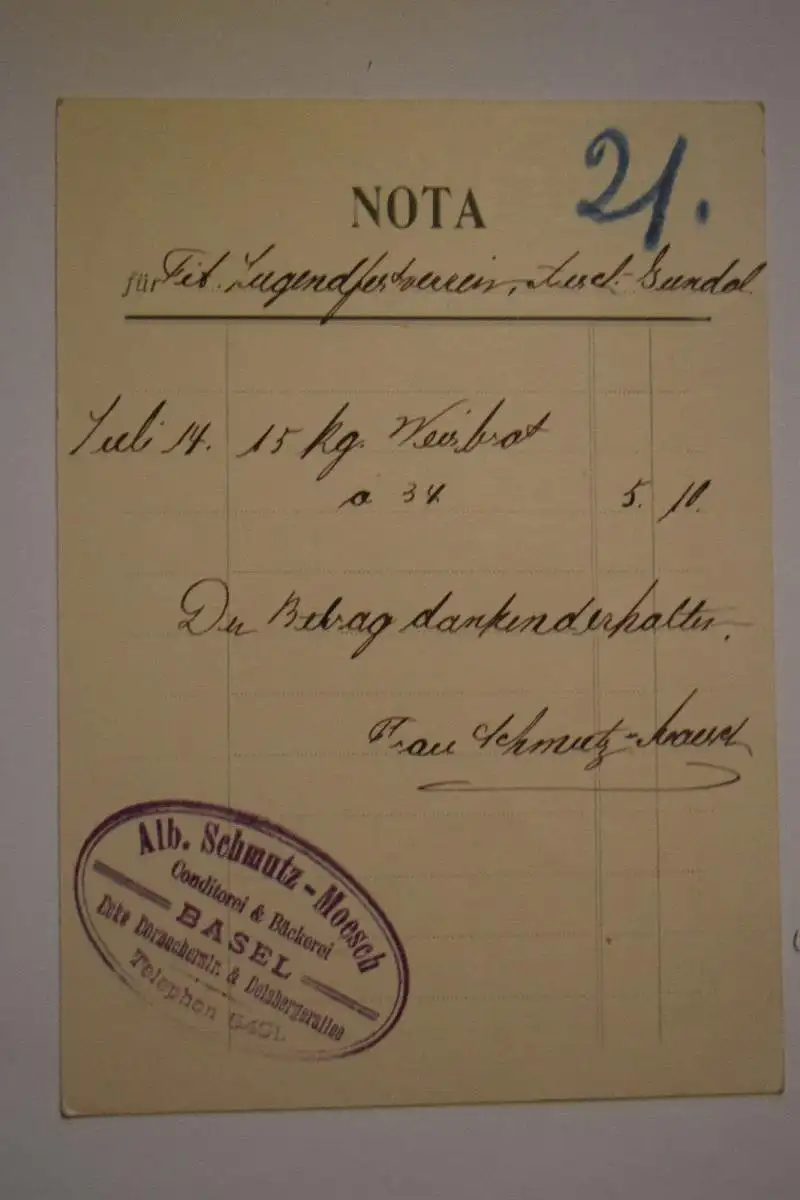 21.
NOTA
für Tit. Jugendfestverein, Aesch-Gundol.
Juli 14. 15 kg. Weisbrot
a 34 5. 10.
Den Betrag dankend erhalten.
Frau Schmutz-Moesch
Alb. Schmutz-Moesch
Conditorei & Bäckerei
BASEL
Ecke Dornacherstr. & Delsbergerallee
Telephon